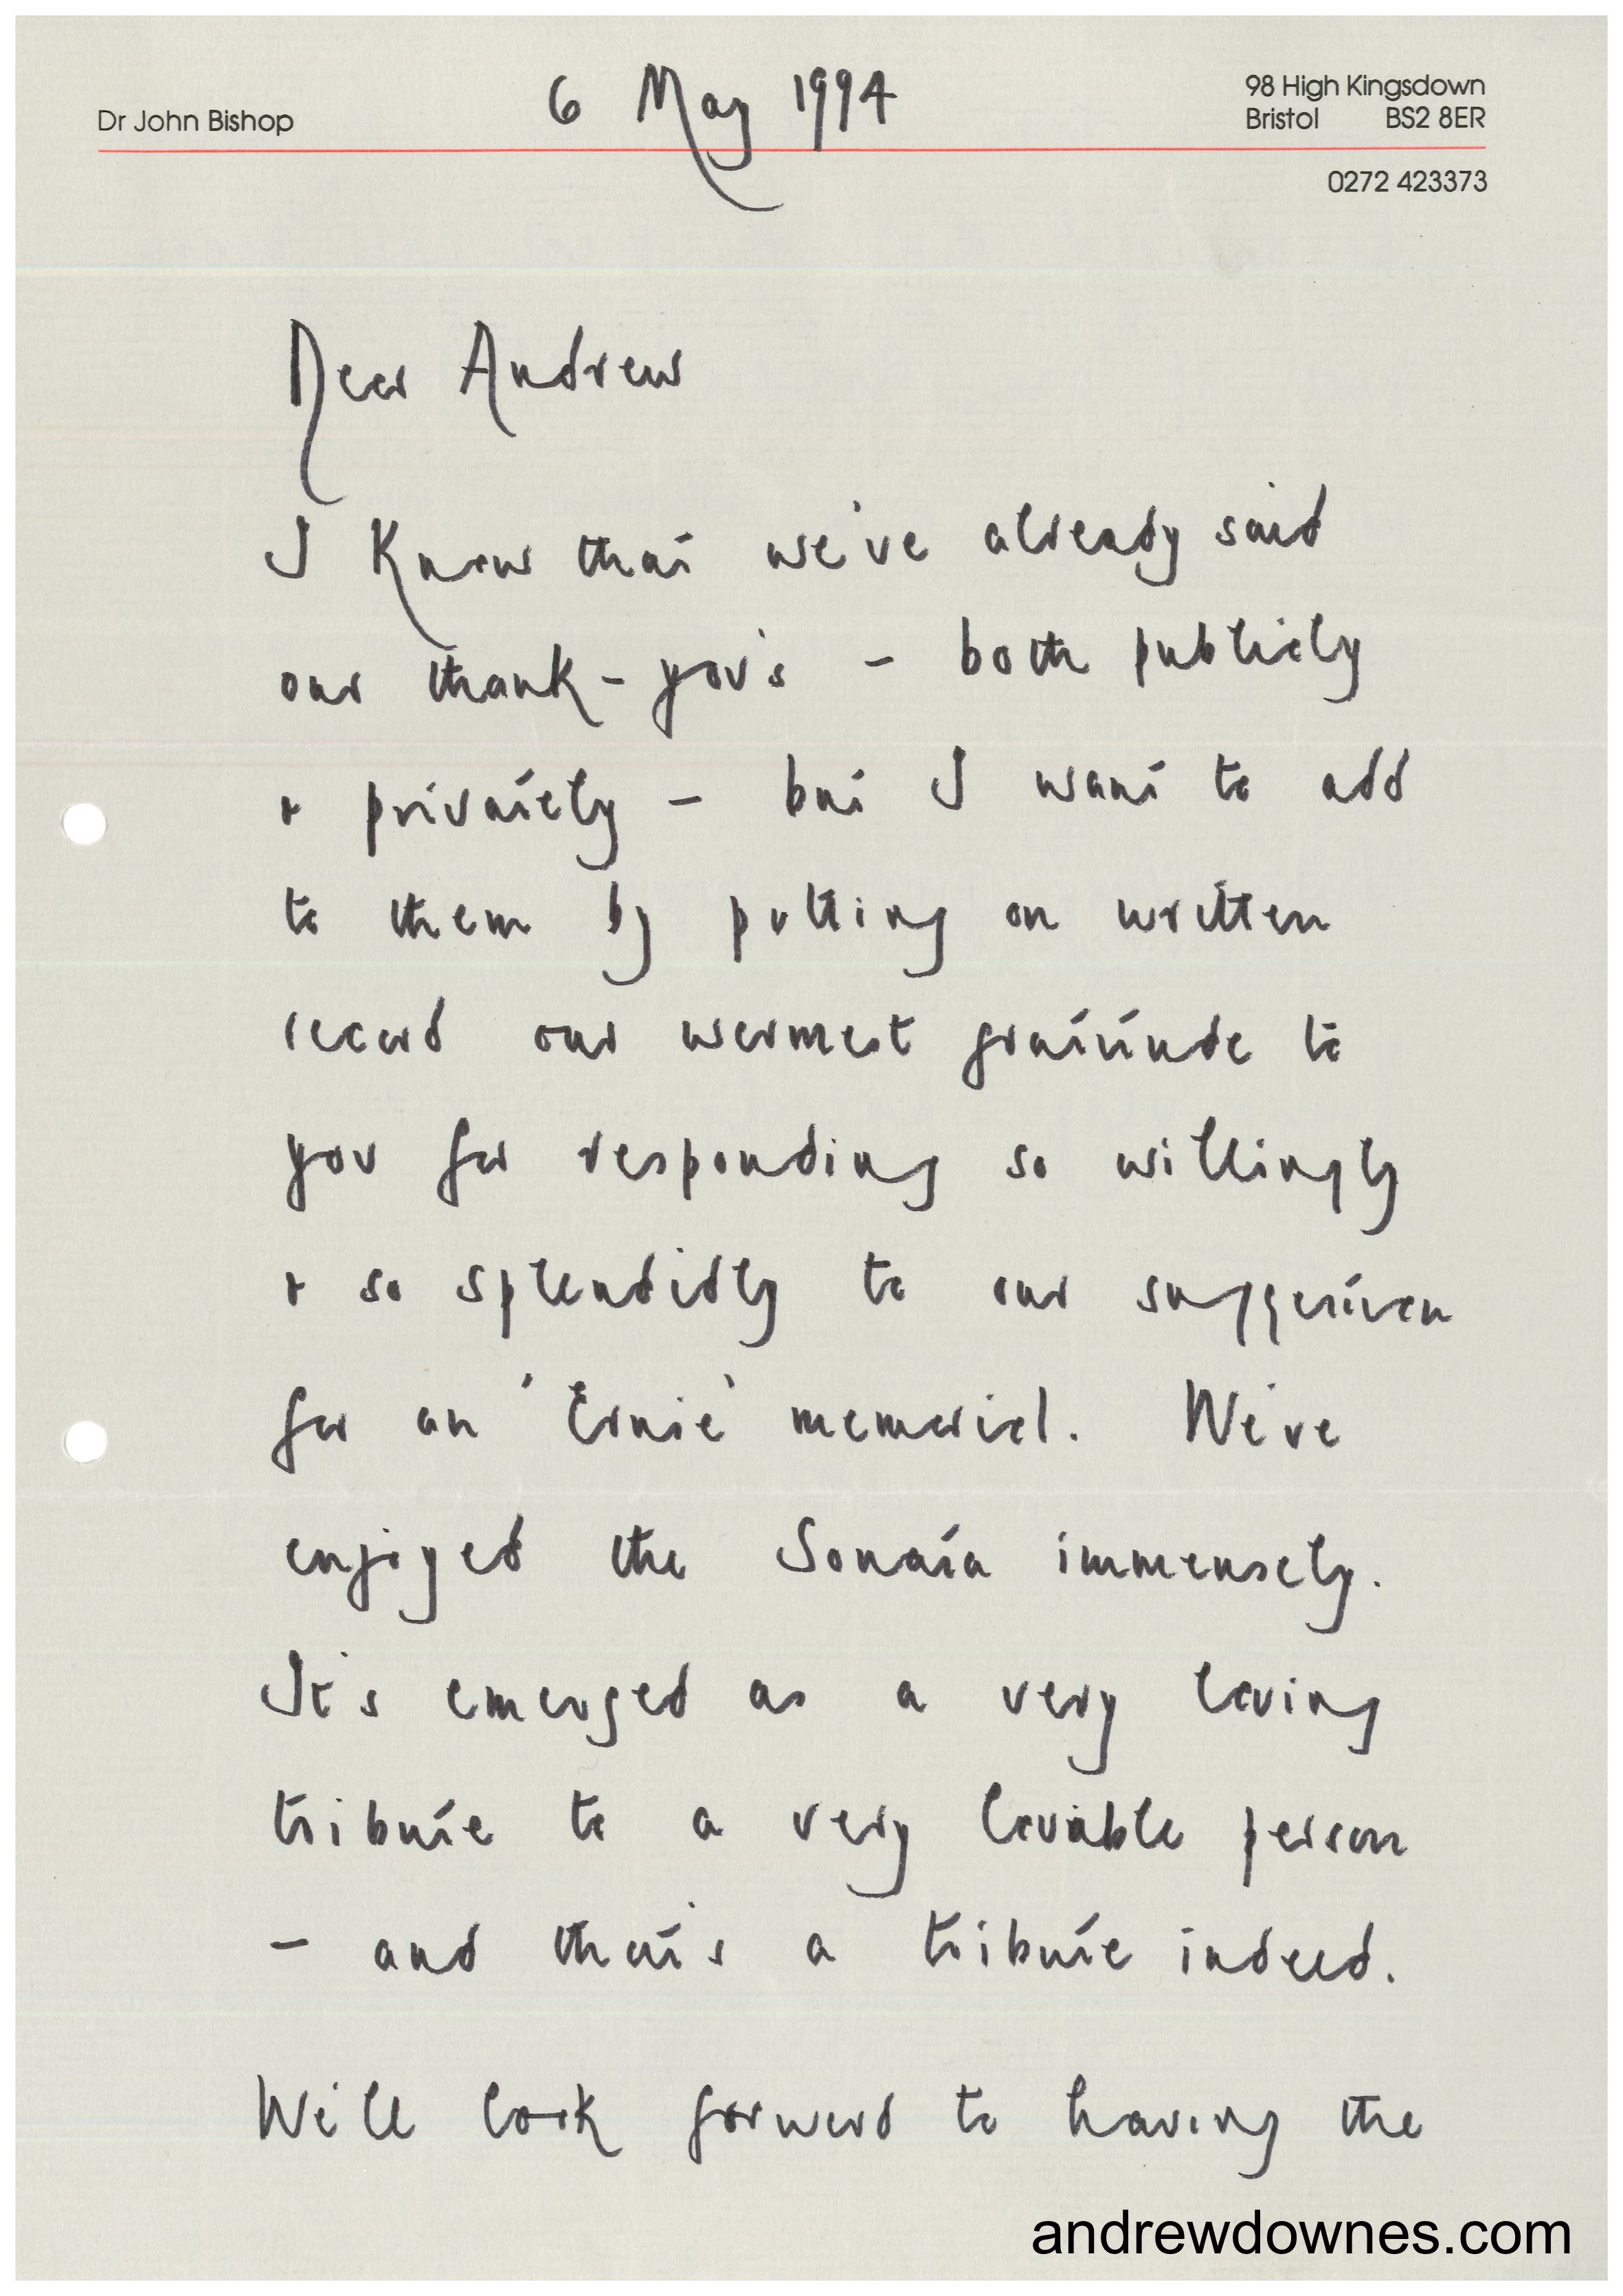 Dr John Bishop
6 May 1994
98 High Kingsdown
Bristol BS2 8ER
0272 423373
Dear Andrew
I know that we've already said
our thank-you's - both publicly
+ privately - but I want to add
to them by putting on written
record our warmest gratitude to
you for responding so willingly
+ so splendidly to our suggestion
for an 'Ernie' memorial. We've
enjoyed the Sonata immensely.
It's emerged as a very loving
tribute to a very lovable person
- and that's a tribute indeed.
We'll look forward to having the
andrewdownes.com